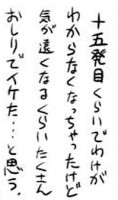 十五発目くらいでわけが
わからなくなっちゃったけど
気が遠くなるくらいたくさん
おしりでイケた…と思う。